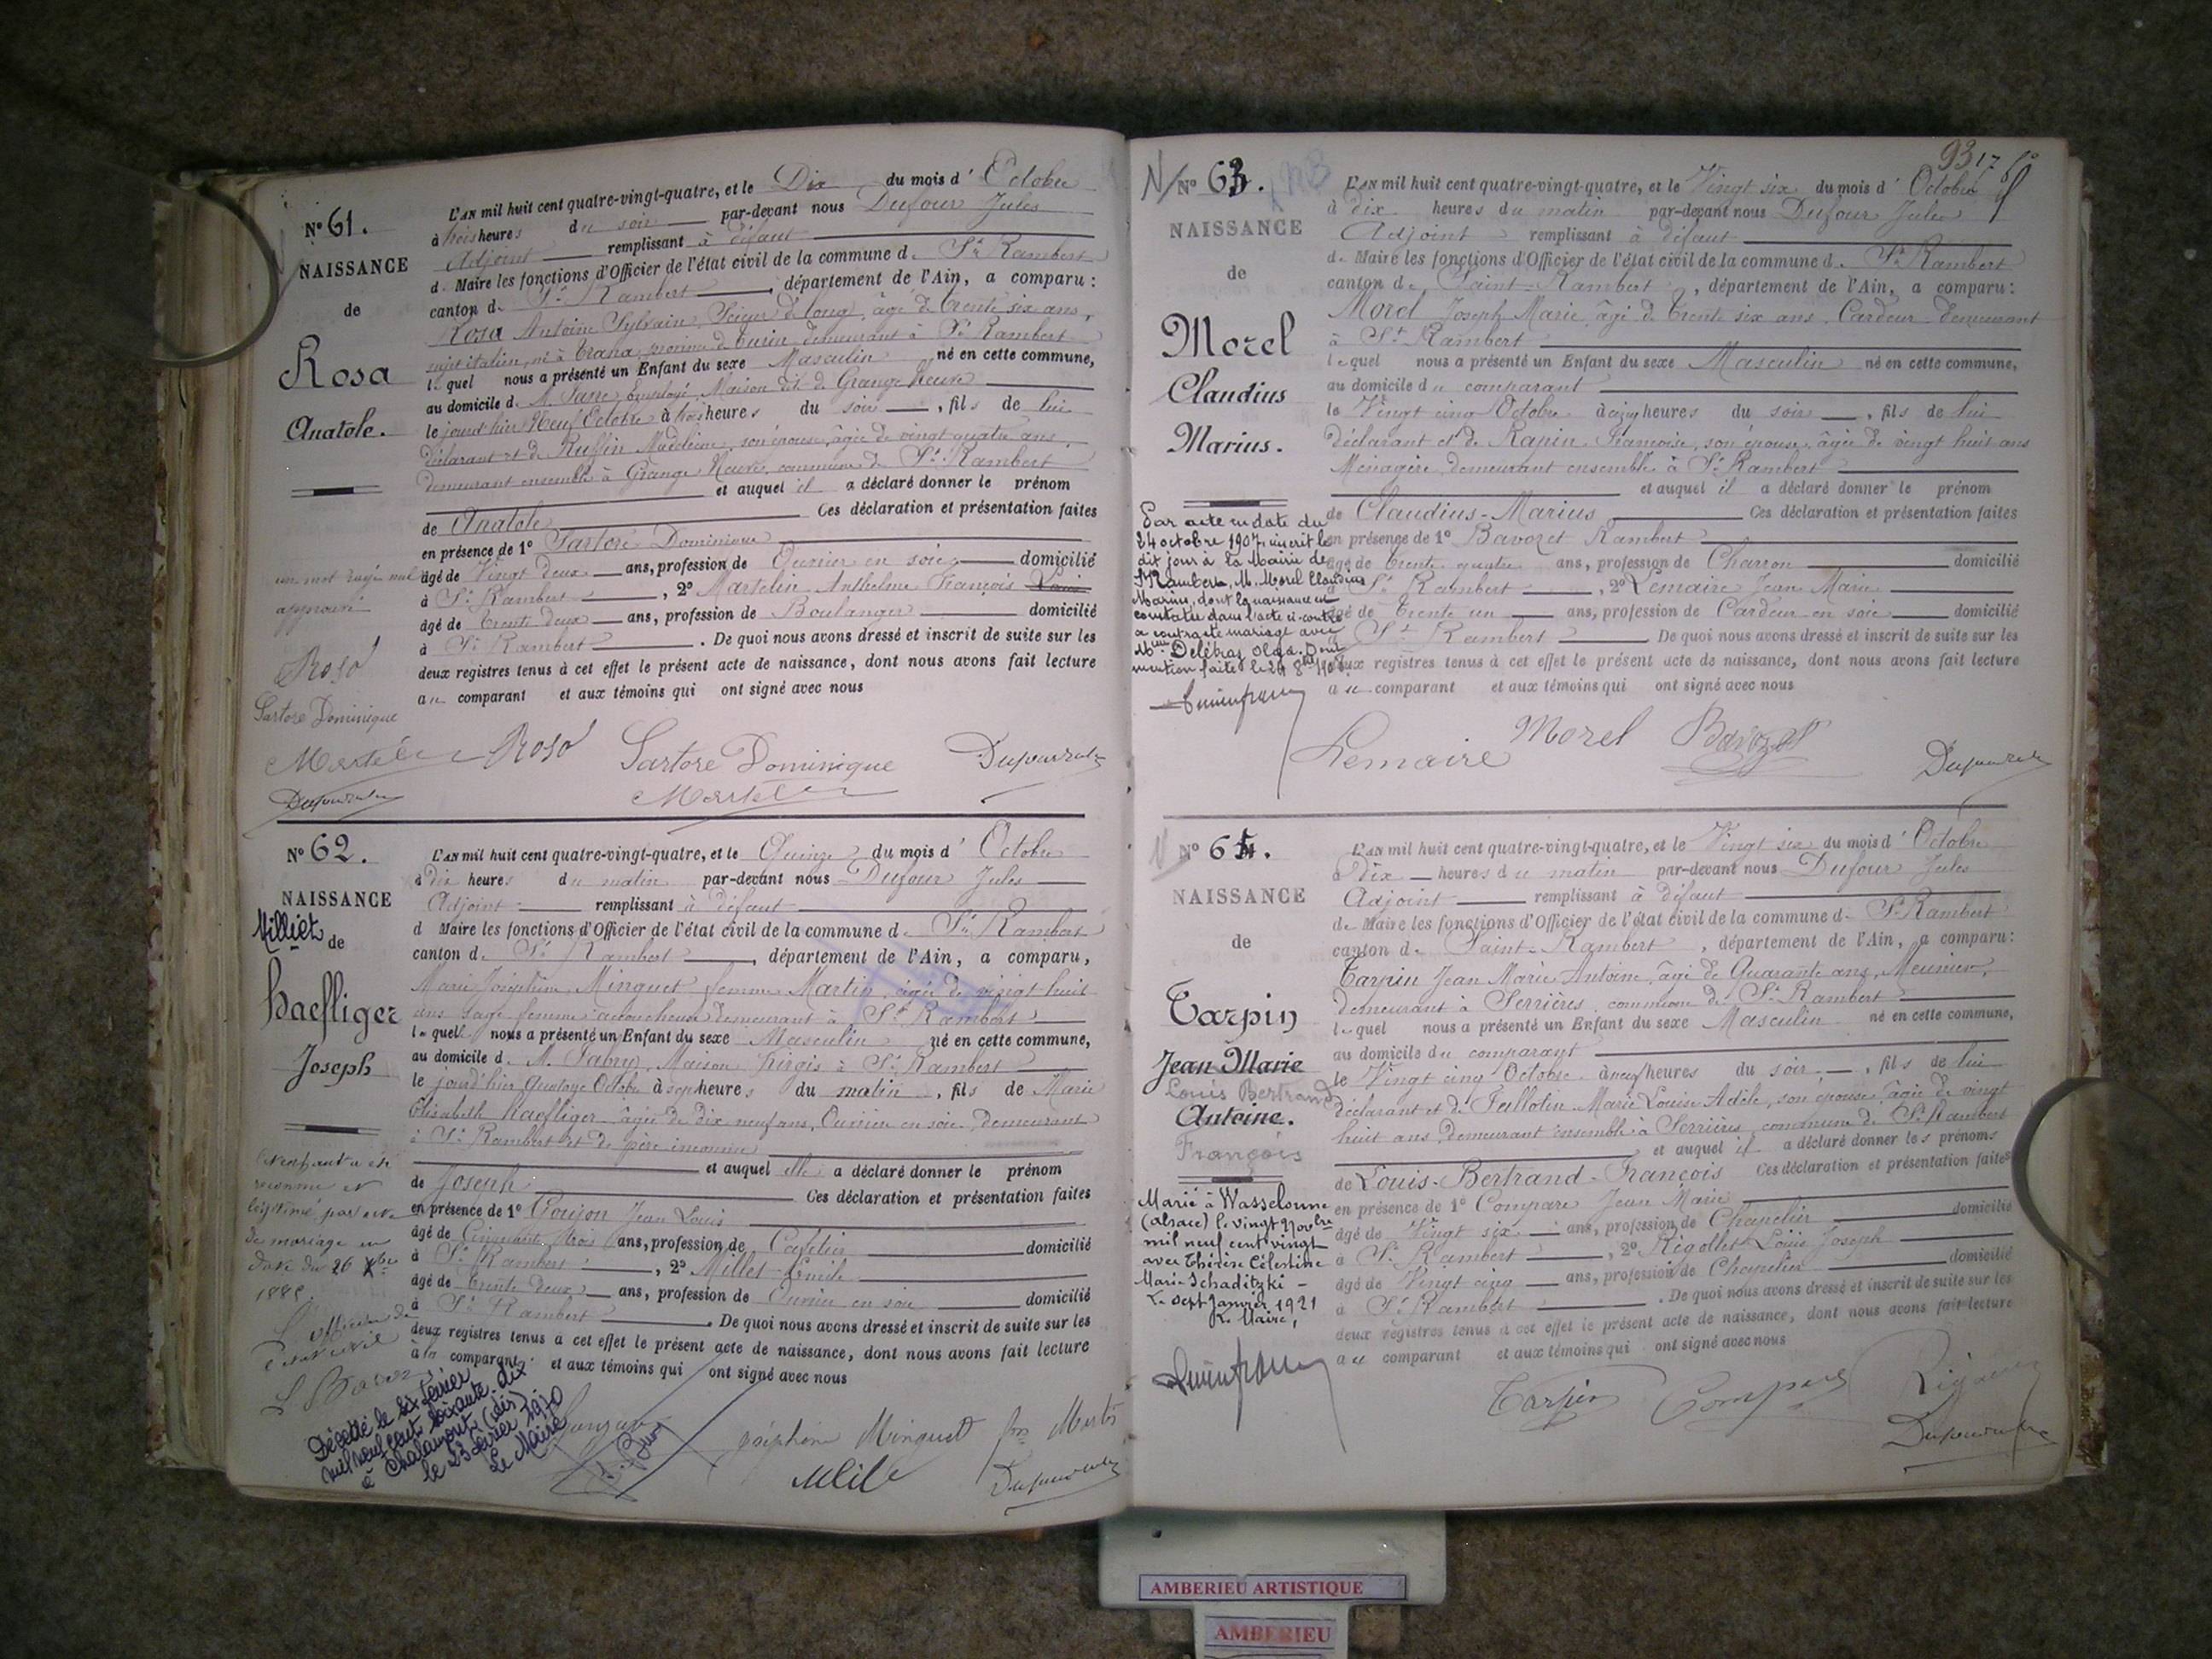 N° 61.
NAISSANCE
de
Rosa
Anatole.
L'AN mil huit cent quatre-vingt-quatre, et le Dix du mois d' Octobre
à trois heures du soir par-devant nous Dufour Jules
Adjoint remplissant à défaut
d. Maire les fonctions d'Officier de l'état civil de la commune d. St Rambert
canton d. St Rambert, département de l'Ain, a comparu :
Rosa Antoine Sylvain, Scieur de long, âgé de trente six ans,
sujet italien, né à Trana, province de Turin, demeurant à St Rambert
lequel nous a présenté un Enfant du sexe Masculin né en cette commune,
au domicile d. M. Employé, Maison dit de Grange Neuve
le jourd'hier Neuf Octobre à trois heures du soir, fils de lui
déclarant et de Ruffin Madeleine, son épouse, âgée de vingt quatre ans,
demeurant ensemble à Grange Neuve, commune de St Rambert
et auquel il a déclaré donner le prénom
de Anatole Ces déclaration et présentation faites
en présence de 1° Sartore Dominique
âgé de Vingt deux ans, profession de Ouvrier en soie domicilié
à St Rambert, 2° Martelin Anthelme François
âgé de trente deux ans, profession de Boulanger domicilié
à St Rambert. De quoi nous avons dressé et inscrit de suite sur les
deux registres tenus à cet effet le présent acte de naissance, dont nous avons fait lecture
au comparant et aux témoins qui ont signé avec nous
un mot rayé nul
approuvé
Roso
Sartore Dominique
Roso Sartore Dominique
N° 62.
NAISSANCE
Milliet de
haefliger
Joseph
L'AN mil huit cent quatre-vingt-quatre, et le Quinze du mois d' Octobre
à dix heures du matin par-devant nous Dufour Jules
Adjoint remplissant à défaut
d Maire les fonctions d'Officier de l'état civil de la commune d. St Rambert
canton d. St Rambert, département de l'Ain, a comparu,
Marie Joséphine Minguet femme Martin, âgée de vingt huit
ans sage femme accoucheuse demeurant à St Rambert
laquelle nous a présenté un Enfant du sexe Masculin né en cette commune,
au domicile d. M. Fabry, Maison à St Rambert
le jourd'hier quatorze Octobre à sept heures du matin, fils de Marie
Elisabeth haefliger âgée de dix neuf ans, Ouvrière en soie, demeurant
à St Rambert et de père inconnu
et auquel elle a déclaré donner le prénom
de Joseph Ces déclaration et présentation faites
en présence de 1° Goujon Jean Louis
âgé de Cinquante trois ans, profession de Cafetier domicilié
à St Rambert, 2° Millet Emile
âgé de trente deux ans, profession de Ouvrier en soie domicilié
à St Rambert. De quoi nous avons dressé et inscrit de suite sur les
deux registres tenus à cet effet le présent acte de naissance, dont nous avons fait lecture
à la comparante et aux témoins qui ont signé avec nous
L'enfant a été
reconnu et
légitimé par acte
de mariage en
date du 26 Xbre
L'officier de
l'état civil
Décédé le six février
mil neuf cent soixante dix
à Chalamont (Ain)
le 23 février 1970
Le Maire
Joséphine Minguet
93
N° 63.
NAISSANCE
de
Morel
Claudius
Marius.
L'AN mil huit cent quatre-vingt-quatre, et le Vingt six du mois d' Octobre
à dix heures du matin par-devant nous Dufour Jules
Adjoint remplissant à défaut
d. Maire les fonctions d'Officier de l'état civil de la commune d. St Rambert
canton d. Saint-Rambert, département de l'Ain, a comparu :
Morel Joseph Marie, âgé de trente six ans, Cardeur demeurant
à St Rambert
lequel nous a présenté un Enfant du sexe Masculin né en cette commune,
au domicile du comparant
le Vingt cinq Octobre à cinq heures du soir, fils de lui
déclarant et de Rapin Françoise, son épouse, âgée de vingt huit ans
Ménagère, demeurant ensemble à St Rambert
et auquel il a déclaré donner le prénom
de Claudius-Marius Ces déclaration et présentation faites
en présence de 1° Bavozet Rambert
âgé de trente quatre ans, profession de Charron domicilié
à St Rambert, 2° Lemaire Jean Marie
âgé de trente un ans, profession de Cardeur en soie domicilié
à St Rambert De quoi nous avons dressé et inscrit de suite sur les
deux registres tenus à cet effet le présent acte de naissance, dont nous avons fait lecture
au comparant et aux témoins qui ont signé avec nous
Par acte en date du
24 octobre 1907 inscrit le
dit jour à la Mairie de
St Rambert, M. Morel Claudius
Marius, dont la naissance est
constatée dans l'acte ci-contre
a contracté mariage avec
Melle Delébras Olga. Dont
mention faite le 24 8bre
Lemaire Morel Bavozet
N° 64.
NAISSANCE
de
Tarpin
Jean Marie
Louis Bertrand
Antoine.
François
L'AN mil huit cent quatre-vingt-quatre, et le Vingt six du mois d' Octobre
à Dix heures du matin par-devant nous Dufour Jules
Adjoint remplissant à défaut
de Maire les fonctions d'Officier de l'état civil de la commune d. St Rambert
canton d. Saint-Rambert, département de l'Ain, a comparu :
Tarpin Jean Marie Antoine, âgé de Quarante ans, Meunier,
demeurant à Serrières, commune de St Rambert
lequel nous a présenté un Enfant du sexe Masculin né en cette commune,
au domicile du comparant
le Vingt cinq Octobre à neuf heures du soir, fils de lui
déclarant et de Tullotin Marie Louise Adèle, son épouse, âgée de vingt
huit ans, demeurant ensemble à Serrières, commune de St Rambert
et auquel il a déclaré donner les prénoms
de Louis-Bertrand-François Ces déclaration et présentation faites
en présence de 1° Compare Jean Marie
âgé de Vingt six ans, profession de Chapelier domicilié
à St Rambert, 2° Rigollet Louis Joseph
âgé de Vingt cinq ans, profession de Chapelier domicilié
à St Rambert. De quoi nous avons dressé et inscrit de suite sur les
deux registres tenus à cet effet le présent acte de naissance, dont nous avons fait lecture
au comparant et aux témoins qui ont signé avec nous
Marié à Wasselonne
(Alsace) le vingt novbre
mil neuf cent vingt
avec Thérèse Célestine
Marie Schaditzki -
Le sept Janvier 1921
Le Maire,
Tarpin
AMBERIEU ARTISTIQUE
AMBERIEU